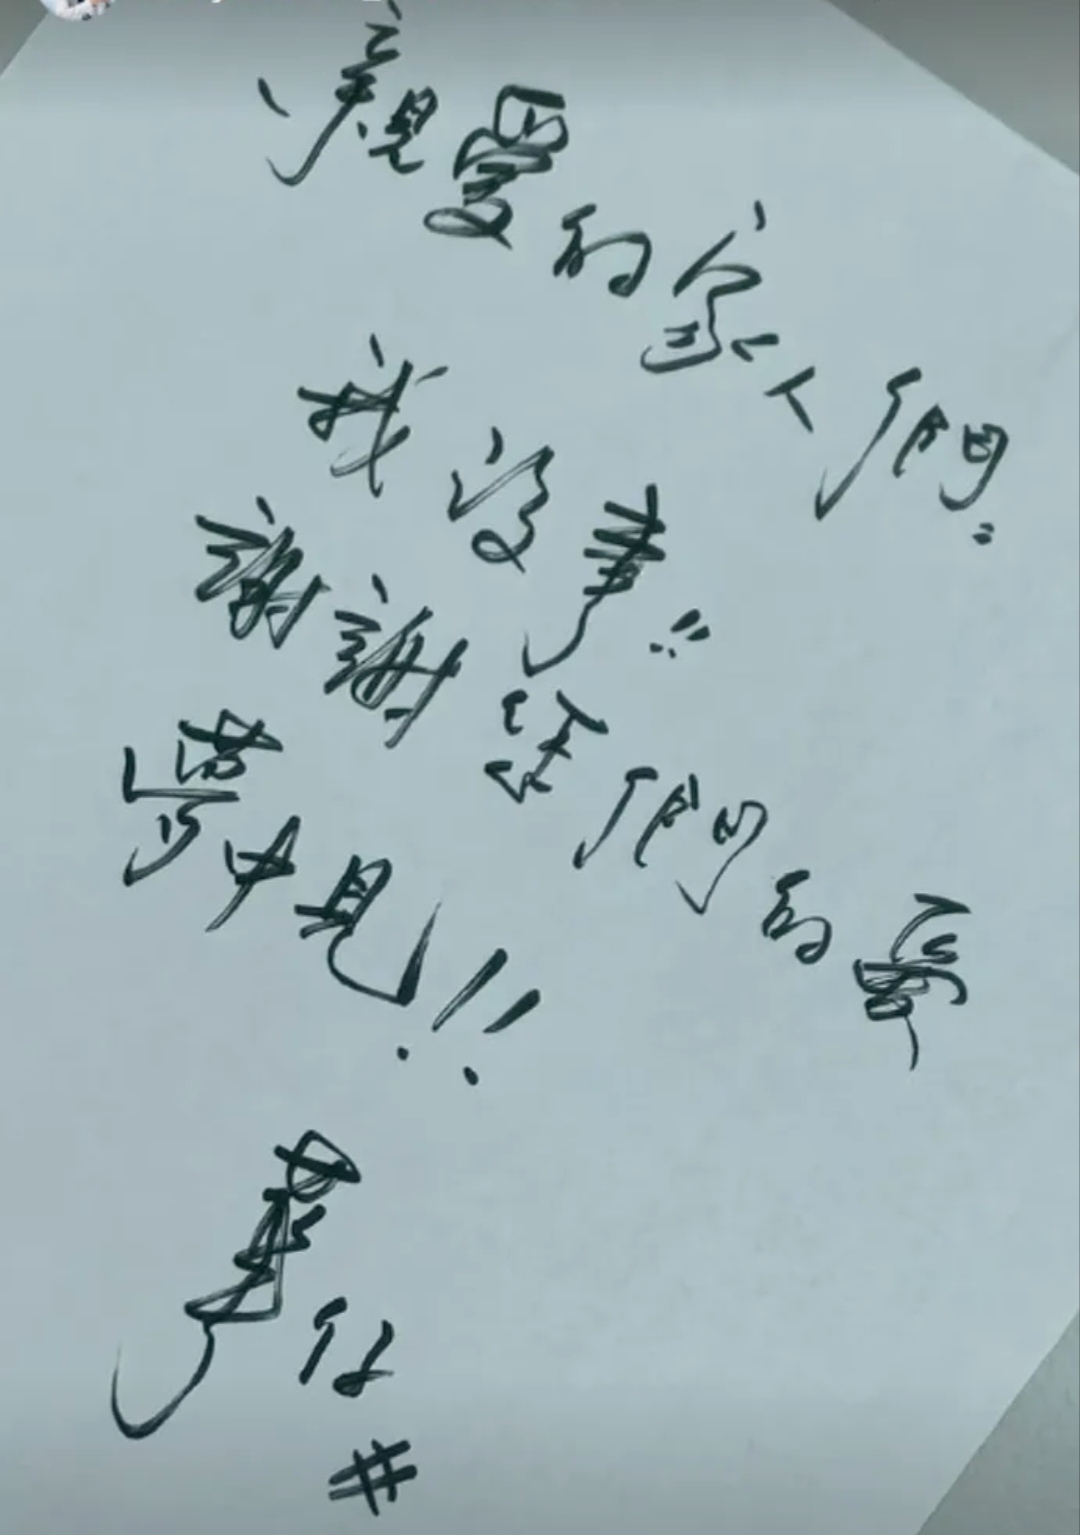 親愛的家人們:
我沒事!!
謝謝你們的愛
夢中見!!
華仔
#